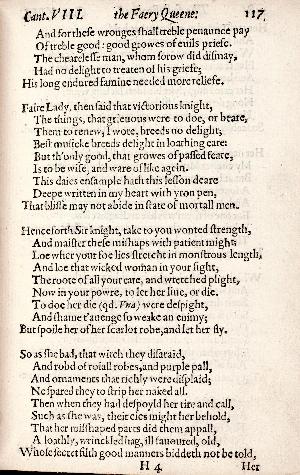 Cant. VIII. the Faery Queene: 117
And for these wronges shall treble penaunce pay
Of treble good: good growes of euils priefe.
The chearelesse man, whom sorow did dismay,
Had no delight to treaten of his griefe;
His long endured famine needed more reliefe.
Faire Lady, then said that victorious knight,
The things, that grieuous were to doe, or beare,
Them to renew, I wote, breeds no delight;
Best musicke breeds delight in loathing eare:
But th'only good, that growes of passed feare,
Is to be wise, and ware of like agein.
This daies ensample hath this lesson deare
Deepe written in my heart with yron pen,
That blisse may not abide in state of mortall men.
Henceforth Sir knight, take to you wonted strength,
And maister these mishaps with patient might;
Loe wher your foe lies stretcht in monstrous length,
And loe that wicked woman in your sight,
The roote of all your care, and wretched plight,
Now in your powre, to let her liue, or die.
To doe her die (qd. Vna) were despight,
And shame t'auenge so weake an enimy;
But spoile her of her scarlot robe, and let her fly.
So as she bad, that witch they disaraid,
And robd of roiall robes, and purple pall,
And ornaments that richly were displaid;
Ne spared they to strip her naked all.
Then when they had despoyld her tire and call,
Such as she was, their eies might her behold,
That her misshaped parts did them appall,
A loathly, wrinckled hag, ill fauoured, old,
Whose secret filth good manners biddeth not be told,
H 4. Her